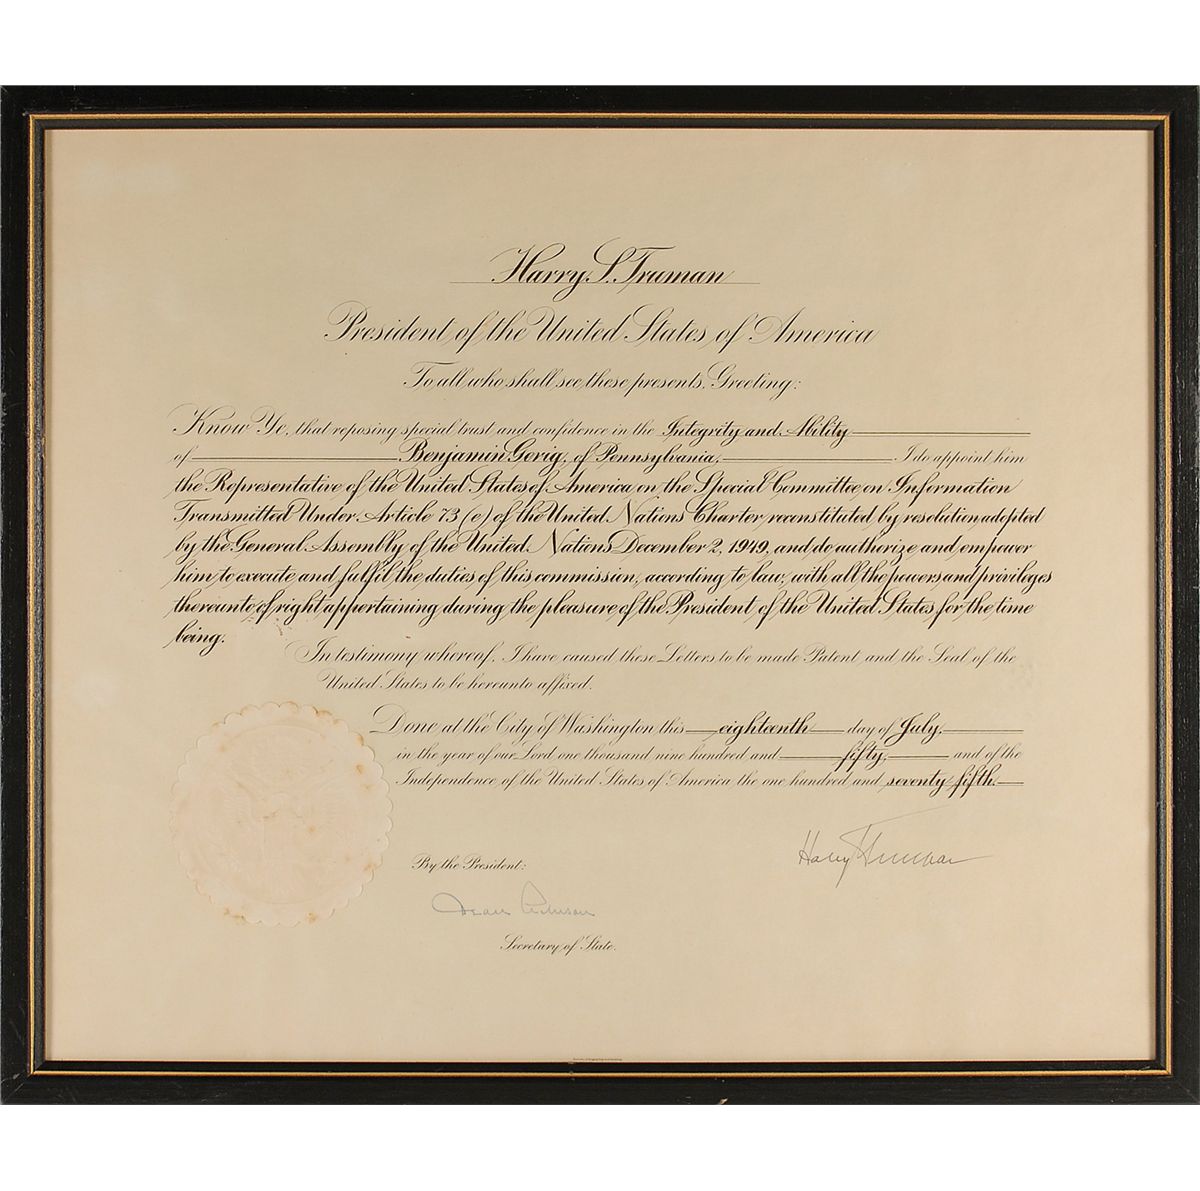 Harry S. Truman
President of the United States of America
To all who shall see these presents, Greeting:
Know Ye, that reposing special trust and confidence in the Integrity and Ability
of Benjamin Gerig, of Pennsylvania, I do appoint him
the Representative of the United States of America on the Special Committee on Information
Transmitted Under Article 73 (e) of the United Nations Charter reconstituted by resolution adopted
by the General Assembly of the United Nations December 2, 1949, and do authorize and empower
him to execute and fulfil the duties of this commission, according to law, with all the powers and privileges
thereunto of right appertaining during the pleasure of the President of the United States for the time
being.
In testimony whereof, I have caused these Letters to be made Patent and the Seal of the
United States to be hereunto affixed.
Done at the City of Washington this eighteenth day of July,
in the year of our Lord one thousand nine hundred and fifty, and of the
Independence of the United States of America the one hundred and seventy fifth.
Harry Truman
By the President:
Dean Acheson
Secretary of State.